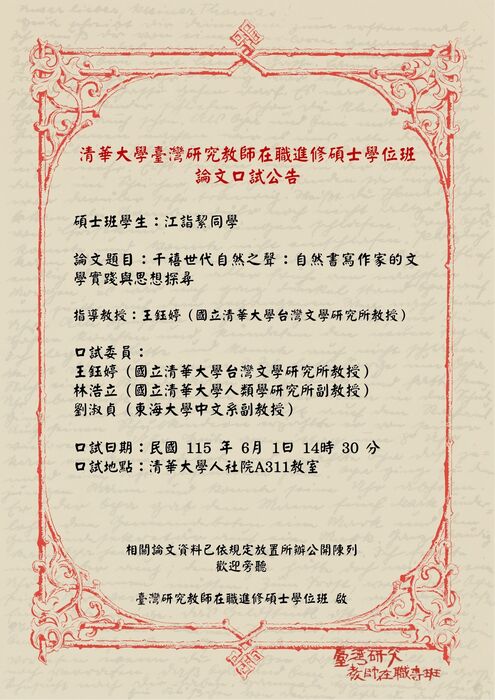 清華大學臺灣研究教師在職進修碩士學位班
論文口試公告
碩士班學生：江詣絜同學
論文題目：千禧世代自然之聲：自然書寫作家的文
學實踐與思想探尋
指導教授：王鈺婷（國立清華大學台灣文學研究所教授）
口試委員：
王鈺婷（國立清華大學台灣文學研究所教授）
林浩立（國立清華大學人類學研究所副教授）
劉淑貞（東海大學中文系副教授）
口試日期：民國 115 年 6月 1日 14時 30 分
口試地點：清華大學人社院A311教室
相關論文資料已依規定放置所辦公開陳列
歡迎旁聽
臺灣研究教師在職進修碩士學位班 啟
臺灣研究
教師在職專班